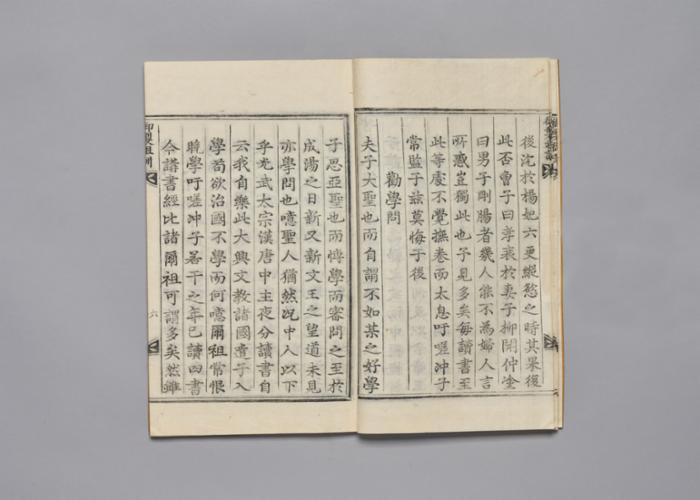 後沈於楊妃六更縱愁之時其果後
此否曾子曰孝衰於妻子柳開仲塗
曰男子剛腸者幾人能不為婦人言
所惑豈獨此也予見多矣每讀書至
此等處不覺撫卷而太息吁嗟沖子
常監于玆莫悔于後
勸學問
夫子大聖也而自謂不如某之好學
子思亞聖也而愽學而審問之至於
成湯之日新又新文王之望道未見
亦學問也噫聖人猶然况中人以下
乎光武太宗漢唐中主夜分讀書自
云我自樂此大興文教諸國遣子入
學苟欲治國不學而何噫爾祖常恨
曉學吁嗟沖子若干之年已讀四書
今講書經比諸爾祖可謂多矣然雖
御製祖訓
六